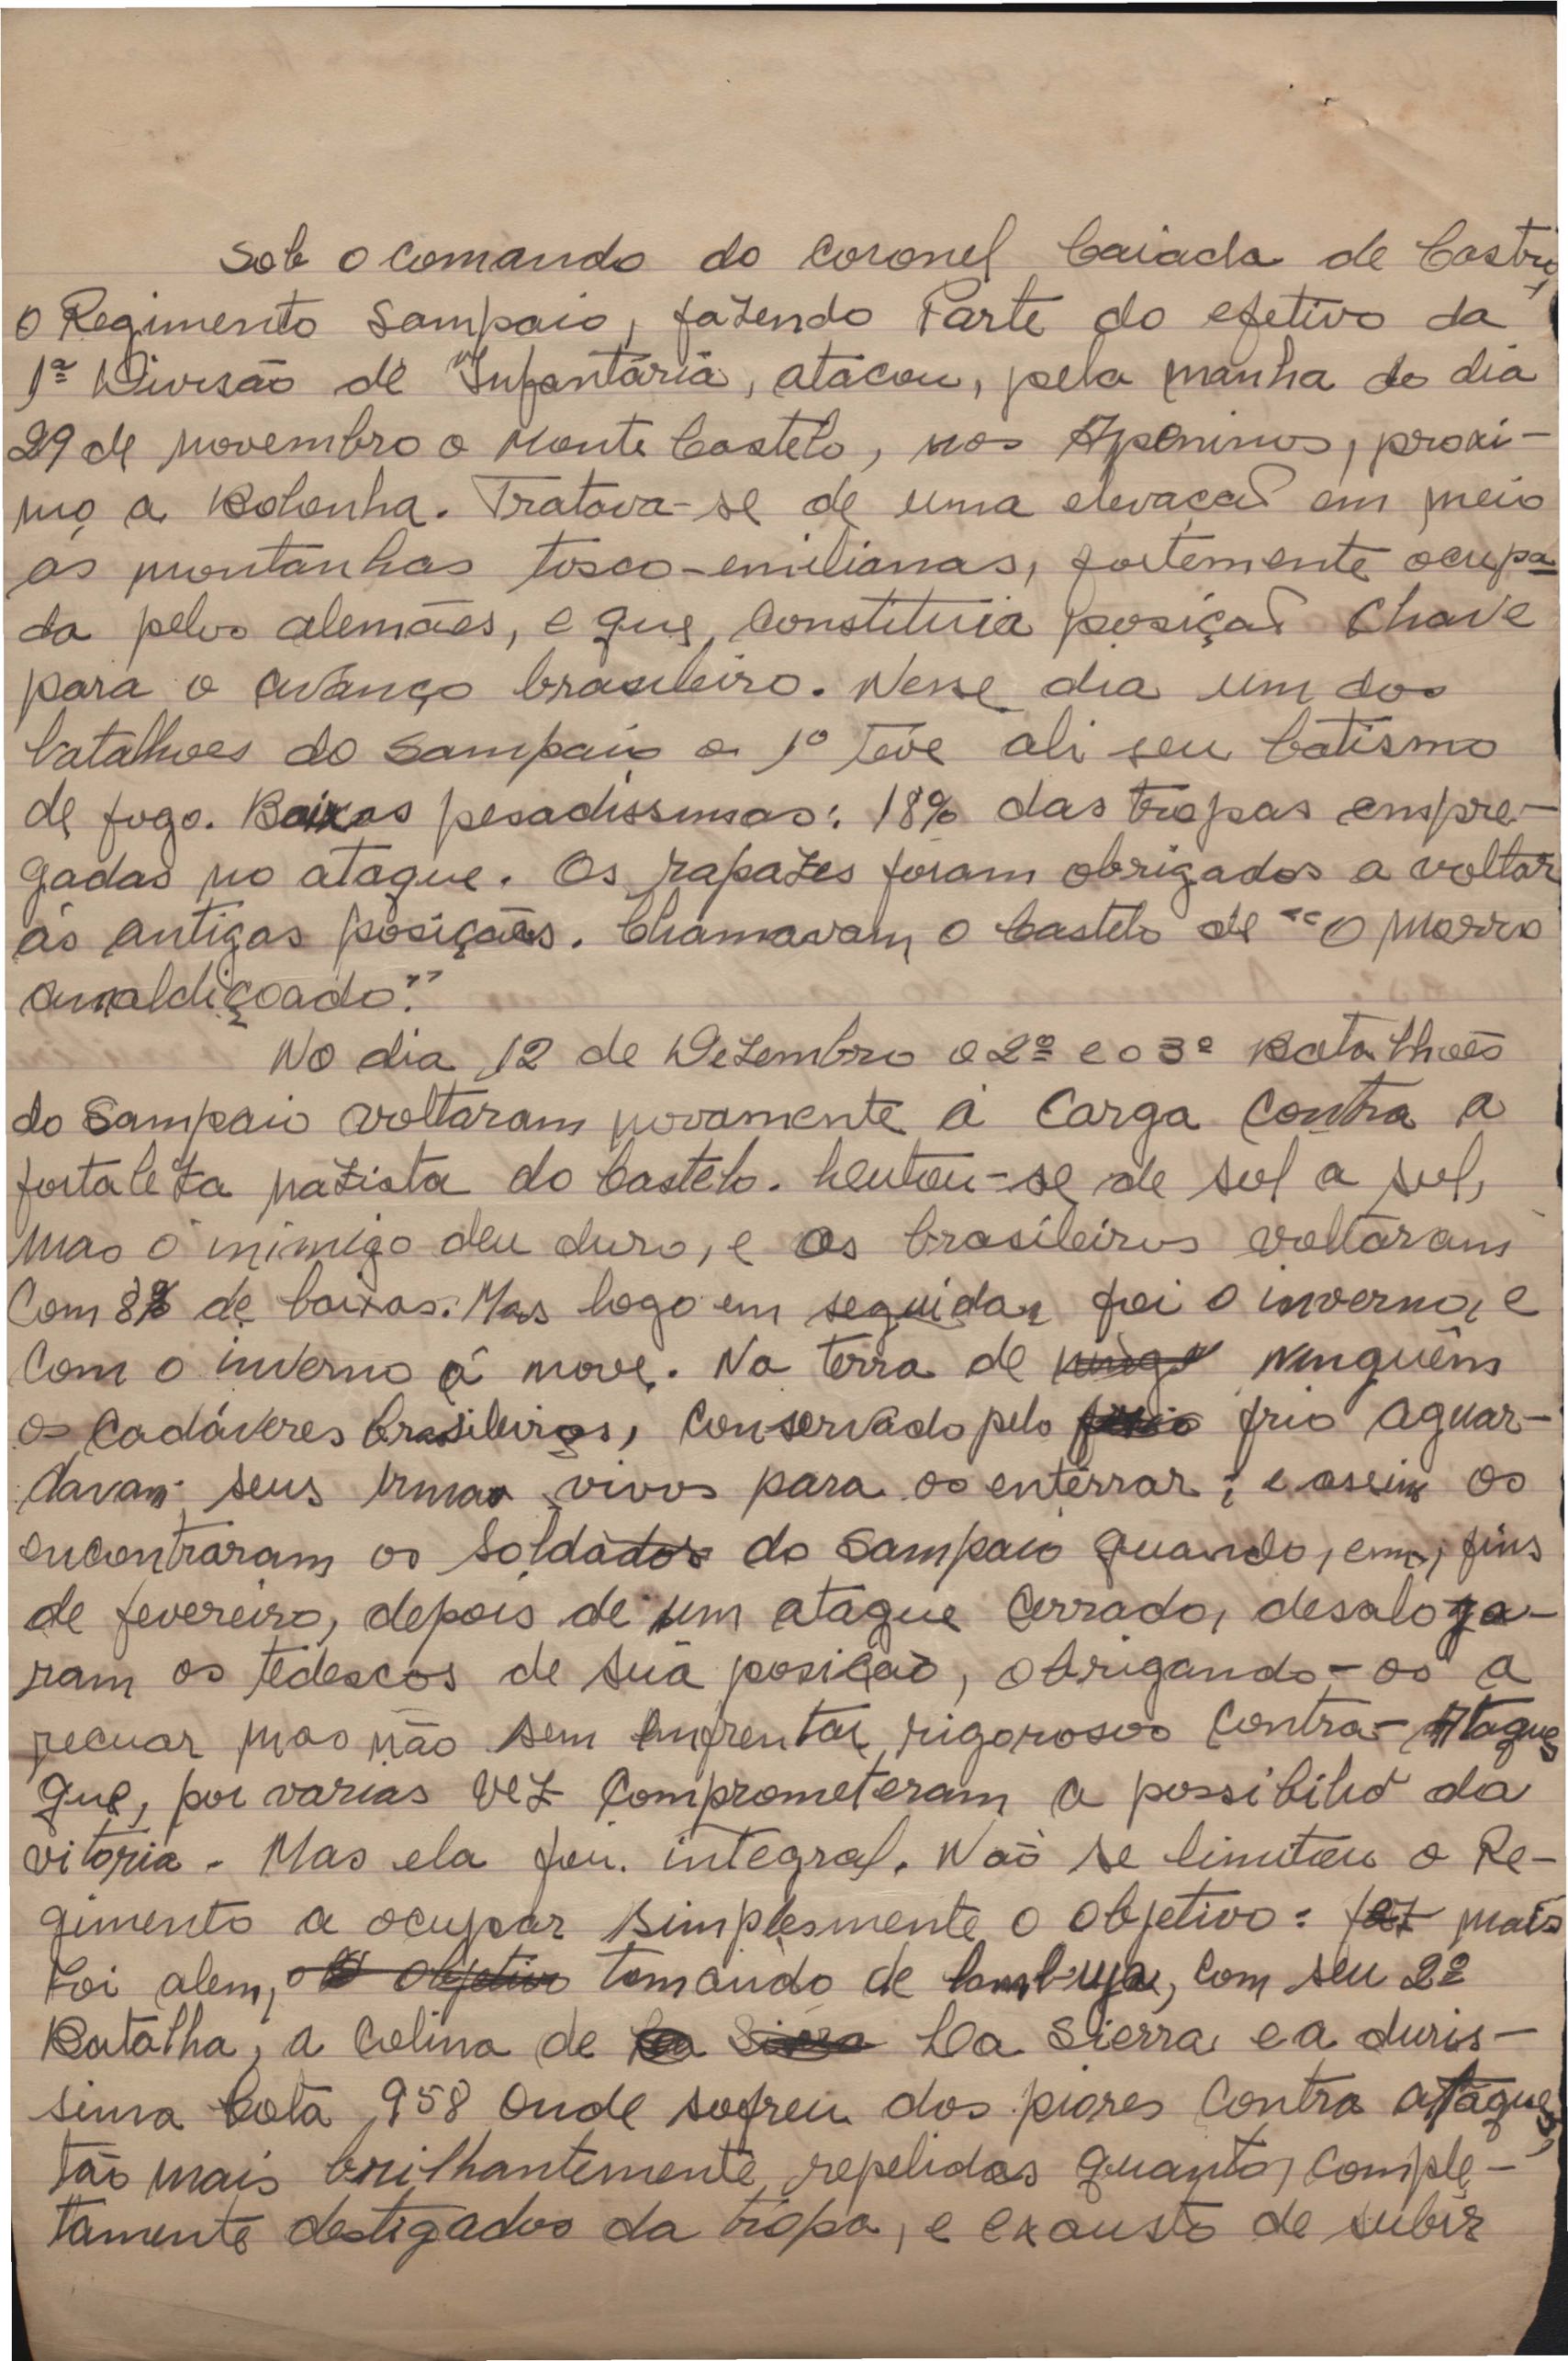 Sob o comando do coronel Caiada de Castro,
o Regimento Sampaio, fazendo Parte do efetivo da
1ª Divisão de Infantaria, atacou, pela manha do dia
29 de novembro o Monte Castelo, nos Apeninos, proxi-
mo a Bolonha. Tratava-se de uma elevação em meio
as montanhas tosco-emilianas, fortemente ocupa-
da pelos alemães, e que, constituia posição chave
para o avanço brasileiro. Nesse dia um dos
batalhoes do Sampaio o 1º teve ali seu batismo
de fogo. Baixas pesadissimas: 18% das tropas empre-
gadas no ataque. Os rapazes foram obrigados a voltar
ás antigas posições. Chamavam o Castelo de "O morro
amaldiçoado."
No dia 12 de Dezembro o 2º e o 3º Batalhões
do Sampaio voltaram novamente á carga contra a
fortaleza nazista do Castelo. Lentou-se de sol a sol,
mas o inimigo deu duro, e os brasileiros voltaram
Com 8% de baixas. Mas logo em seguida, foi o inverno, e
com o inverno á nove. Na terra de ninguêm
os cadáveres brasileiros, conservado pelo frio aguar-
davam seus irmao vivos para os enterrar; e assim os
encontraram os soldados do Sampaio quando, em, fins
de fevereiro, depois de um ataque cerrado, desaloja-
ram os tedescos de sua posição, obrigando-os a
recuar mas não sem enfrentar rigorosos contra-Ataques
que, por varias vez comprometeram a possibilid da
vitoria. Mas ela foi integral. Não se limitou o Re-
gimento a ocupar simplesmente o objetivo: fez mais
Foi alem, o objetivo tomando de lambuja, com seu 2º
Batalha, a colina de La Sierra e a duris-
sima Cota 958 onde sofreu dos piores contra ataques,
tão mais brilhantemente repelidos quanto, comple-
tamente destigados da tropa, e exausto de subir